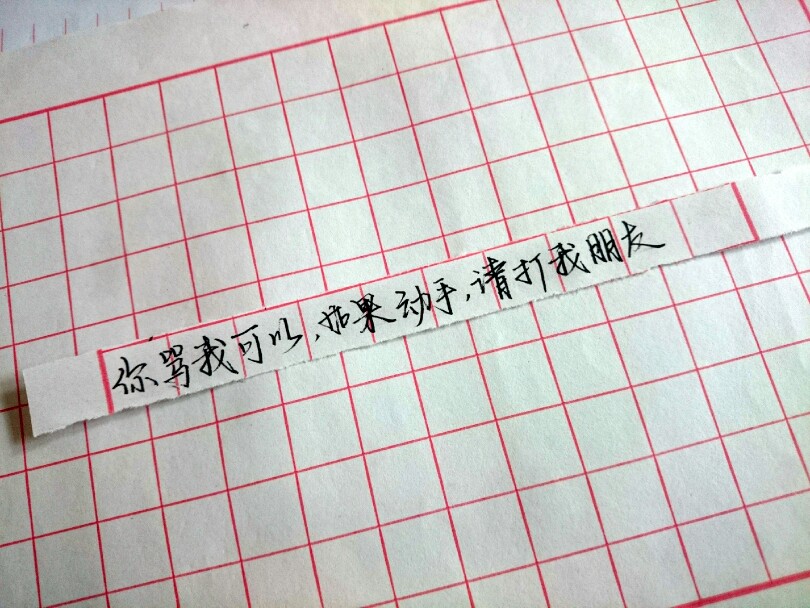 你骂我可以,如果动手,请打我朋友